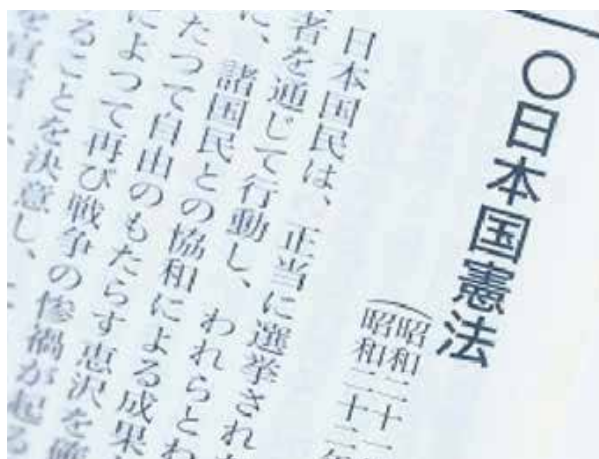 〇日本国憲法
(昭和二十一
昭和二十二年
日本国民は、正当に選挙され
者を通じて行動し、われらとわ
に、諸国民との協和による成果
たつて自由のもたらす恵沢を確
によつて再び戦争の惨禍が起る
ることを決意し、
を宣言し、